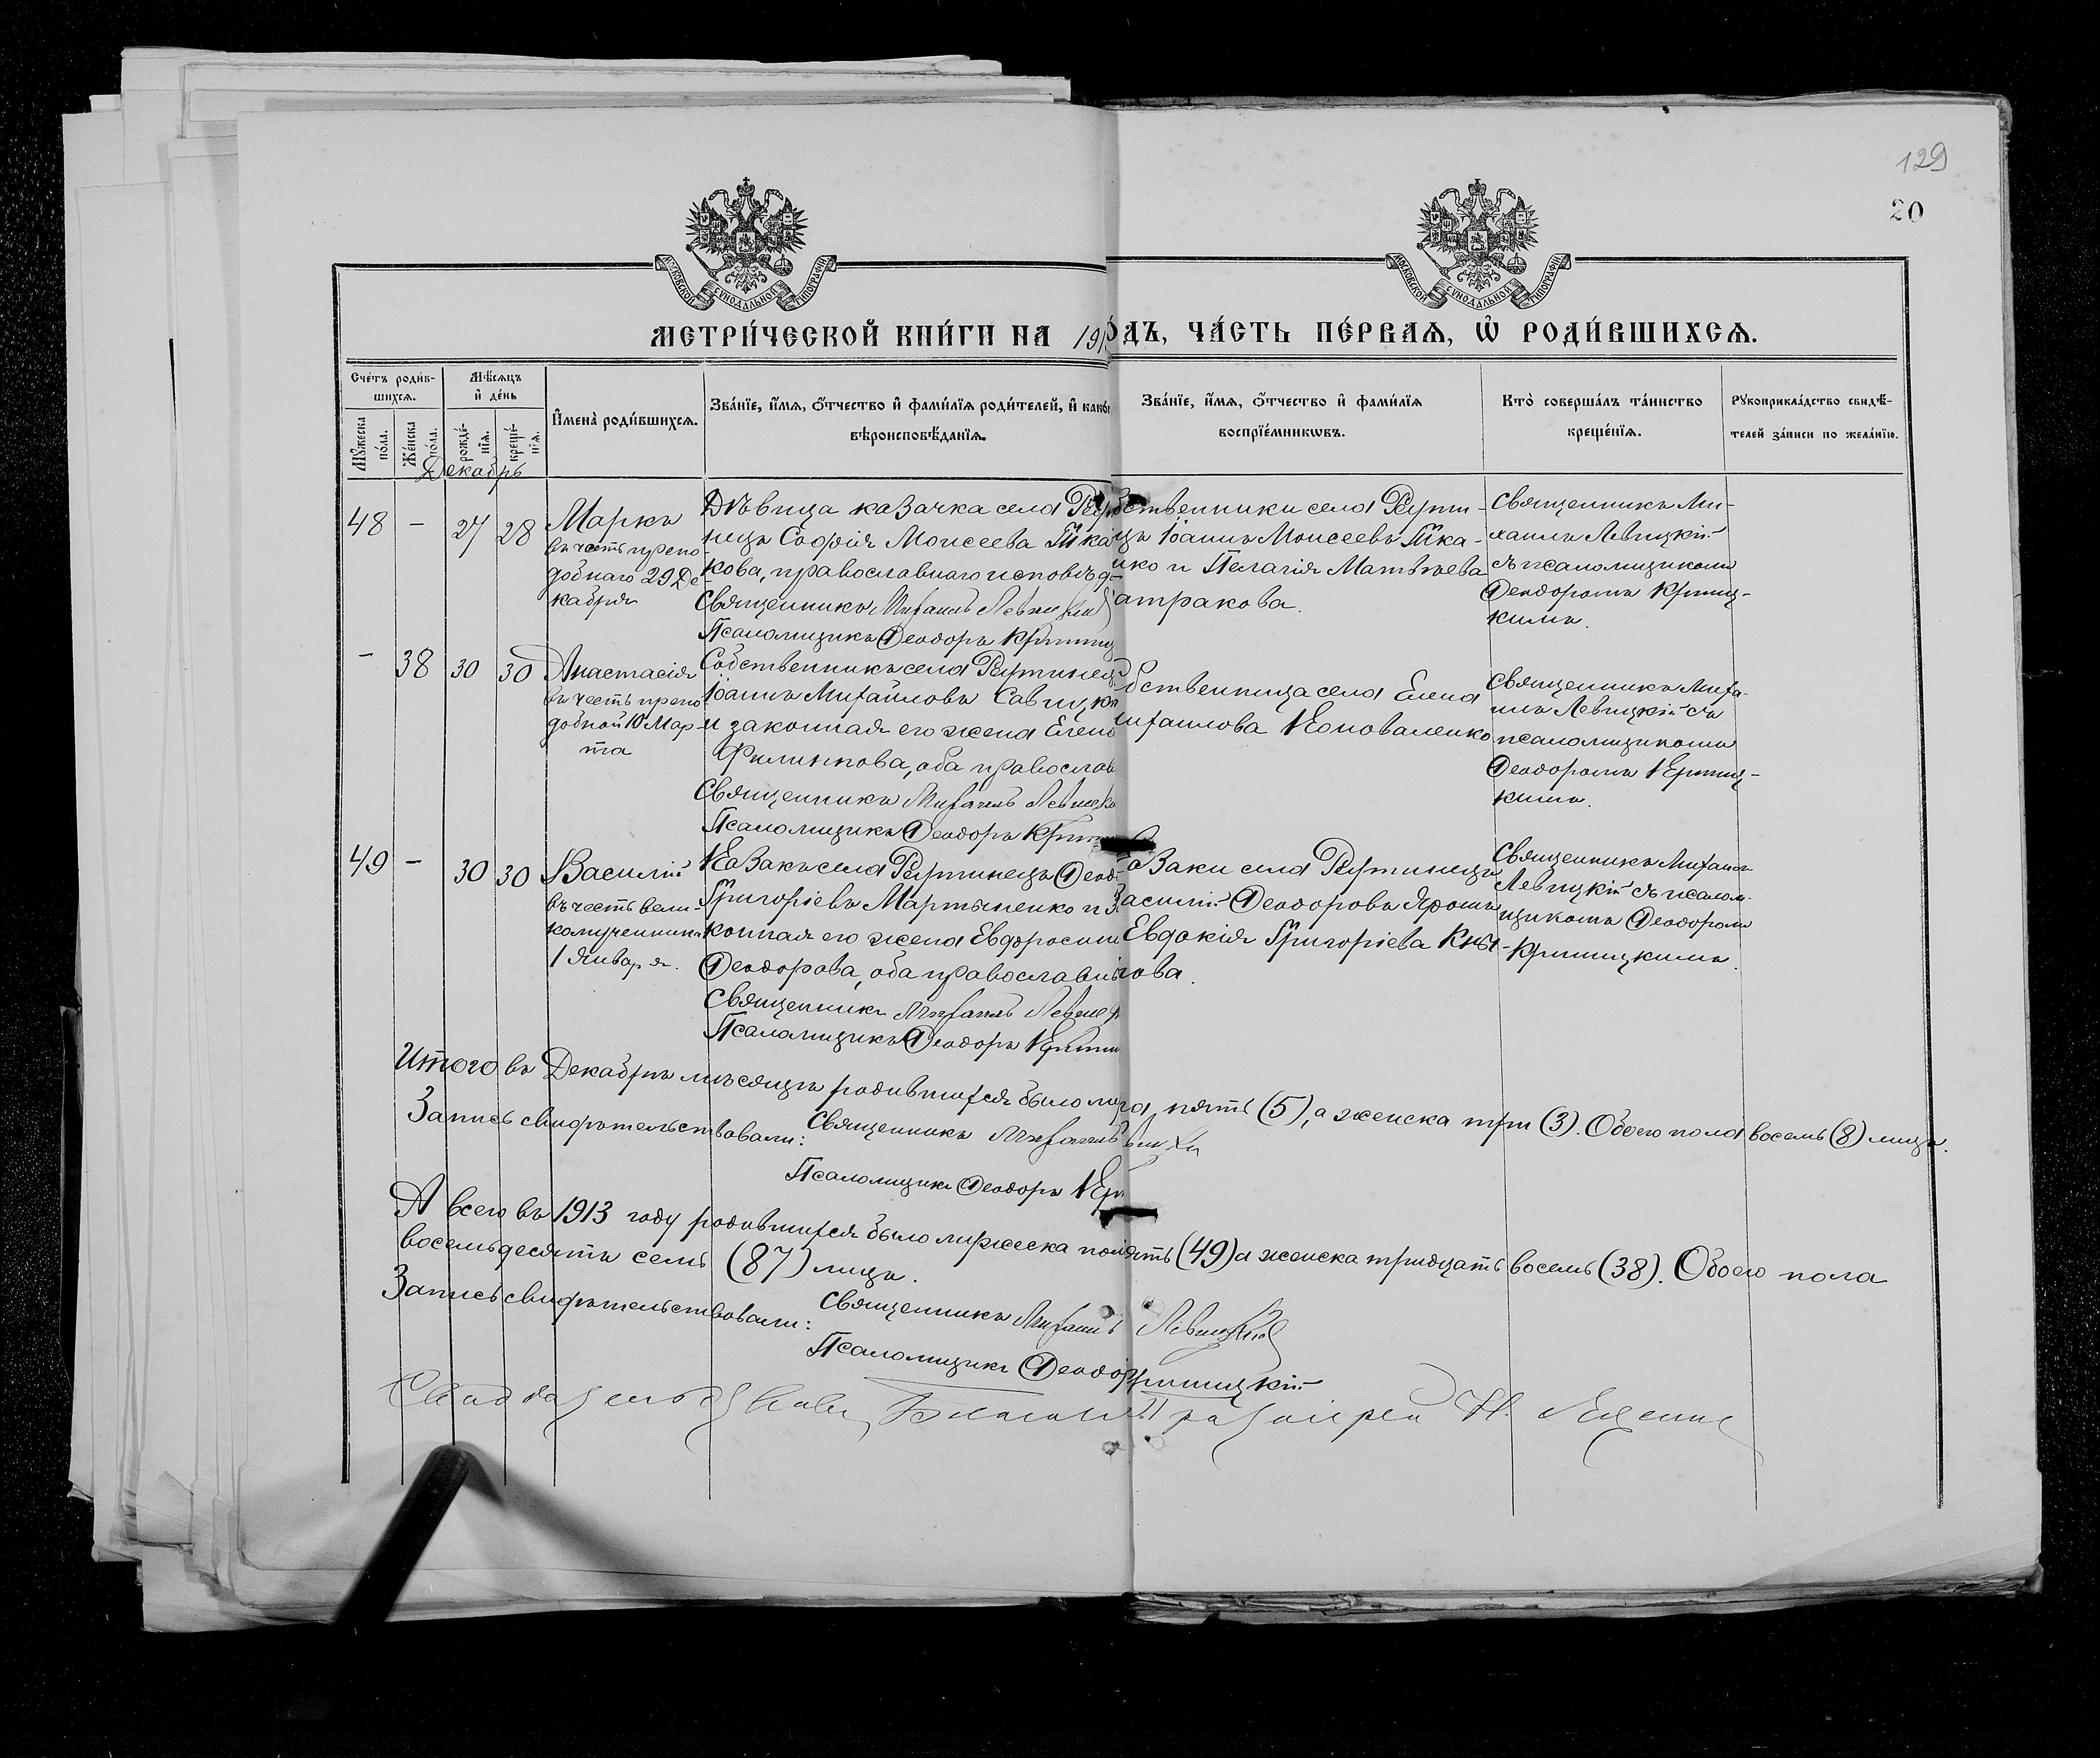 129
20
МОСКОВСКОЙ СѴНОДАЛЬНОЙ ТИПОГРАФІИ
МОСКОВСКОЙ СѴНОДАЛЬНОЙ ТИПОГРАФІИ
МЕТРИ́ЧЕСКОЙ КНИ́ГИ НА 191
ОДЪ, ЧА́СТЬ ПЕ́РВАѦ, Ѡ҆ РОДИ́ВШИХСѦ.
Сче́тъ роди́в-
шихсѧ.
Мѣ́сѧцъ
и҆ де́нь
Мꙋ́жеска по́ла.
Же́нска по́ла.
рожде́-нїѧ.
креще́-нїѧ.
И҆мена̀ роди́вшихсѧ.
Зва́нїе, и҆́мѧ, ѻ҆́тчество и҆ фами́лїѧ роди́телей, и҆ како́
вѣроисповѣ́данїѧ.
Зва́нїе, и҆́мѧ, ѻ҆́тчество и҆ фами́лїѧ
воспрїе́мникѡвъ.
Кто̀ соверша́лъ та́инство
креще́нїѧ.
Рꙋкоприкла́дство свидѣ́-
телей за́писи по жела́нїю.
Декабрь
48 – 27 28
Маркъ
въ честь препо
добнаго 29 Де-
кабря
Дѣвица казачка села Реу
нецъ Софія Моисеева Тка
кова, православнаго исповѣд-
Священникъ Михаилъ Левицкій
Псаломщикъ Ѳеодоръ Криниц
бственники села Реути-
цъ Іоаннъ Моисеевъ Тка-
нко и Пелагія Матѳѣева
атракова.
Священникъ Ми-
хаилъ Левицкій
съ псаломщикомъ
Ѳеодоромъ Криниц-
кимъ.
– 38 30 30
Анастасія
въ честь препо
добной 10 Мар-
та
Собственникъ села Реутинецъ
Іоаннъ Михайловъ Савицкі
и законная его жена Елена
Филиппова, оба православ
Священникъ Михаилъ Левицк
Псаломщикъ Ѳеодоръ Крини
бственница села Елена
ихаилова Коноваленко
Священникъ Миха-
илъ Левицкій съ
псаломщикомъ
Ѳеодоромъ Криниц-
кимъ.
49 – 30 30
Василій
въ честь вели-
комученика
1 Января.
Козакъ села Реутинецъ Ѳеод-
Григоріевъ Мартыненко и за
конная его жена Евфросин
Ѳеодорова, оба православны
Священникъ Михаилъ Левиц
Псаломщикъ Ѳеодоръ Крини
озаки села Реутинецъ
асилій Ѳеодоровъ Ярошъ
Евдокія Григоріева Кны-
шова.
Священникъ Михаилъ
Левицкій съ псалом-
щикомъ Ѳеодоромъ
Криницкимъ.
Итого въ Декабрѣ мѣсяцѣ родившихся было му
ла, пять (5), а женска три (3). Обоего пола восемь (8) лицъ.
Запись свидѣтельствовали: Священникъ Михаилъ
вицкій
Псаломщикъ Ѳеодоръ Кри
А всего въ 1913 году родившихся было мужеска пол
вять (49) а женска тридцать восемь (38). Обоего пола
восемьдесятъ семь (87) лицъ.
Запись свидѣтельствовали: Священникъ Михаилъ Левицкій
Псаломщикъ Ѳеодоръ
риницкій